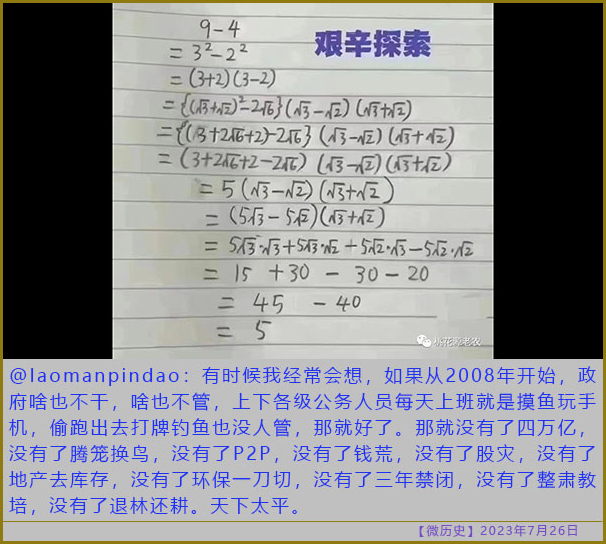 艰辛探索
9-4
= 3²-2²
= (3+2)(3-2)
= {(√3+√2)²-2√6}(√3-√2)(√3+√2)
= {(3+2√6+2)-2√6}(√3-√2)(√3+√2)
= (3+2√6+2-2√6)(√3-√2)(√3+√2)
= 5(√3-√2)(√3+√2)
= (5√3-5√2)(√3+√2)
= 5√3·√3+5√3·√2+5√2·√3-5√2·√2
= 15 +30 - 30-20
= 45 -40
= 5
@laomanpindao：有时候我经常会想，如果从2008年开始，政
府啥也不干，啥也不管，上下各级公务人员每天上班就是摸鱼玩手
机，偷跑出去打牌钓鱼也没人管，那就好了。那就没有了四万亿，
没有了腾笼换鸟，没有了P2P，没有了钱荒，没有了股灾，没有了
地产去库存，没有了环保一刀切，没有了三年禁闭，没有了整肃教
培，没有了退林还耕。天下太平。
【微历史】2023年7月26日